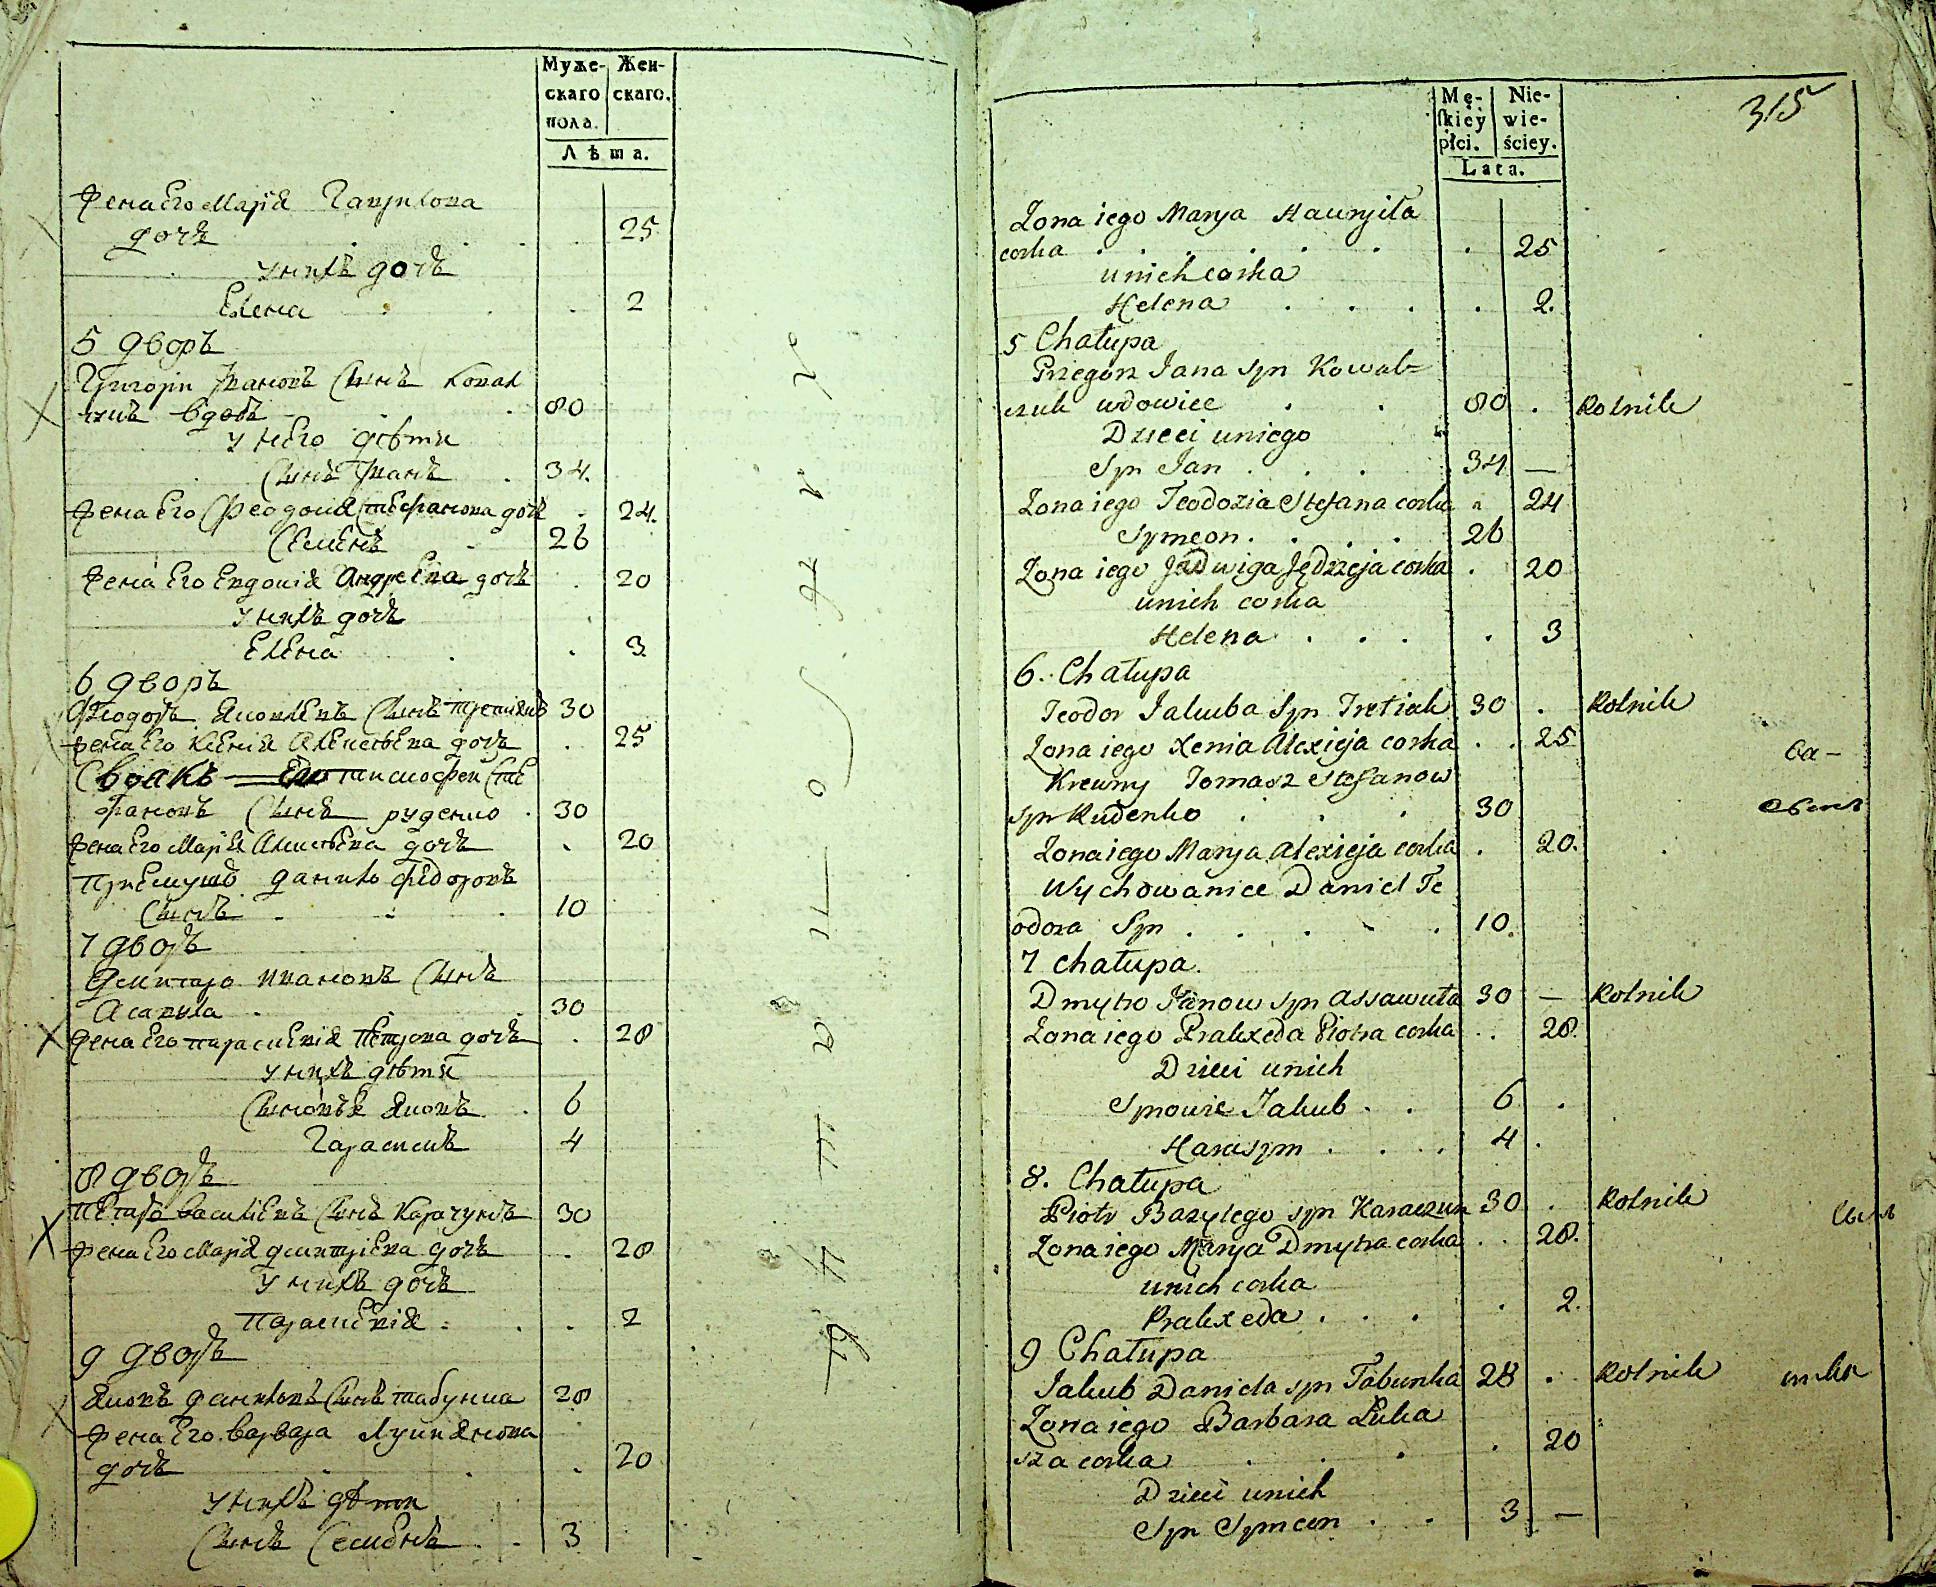 Муже-
скаго
пола.
Жен-
скаго.
Лѣта.
жена Его Марія Гаврилова
дочь 25
У нихъ дочь
Елена 2
5 дворъ
Григорій Ивановъ Сынъ Ковал
чикъ вдовъ 80
У нЕго дѣти
Сынъ Иванъ 34.
жена Его Феодосія Стефанова дочь 24.
СЕмЕнъ 26
жена Его Евдокія Андреева дочь 20
У нихъ дочь
ЕлЕна 3
6 дворъ
Феодоръ Яковлевъ Сынъ третякъ 30
жена Его Ксенія Алексѣева дочь 25
Своякъ Тимофей Сте
фановъ Сынъ руденко 30
жена Его Марія Алексѣева дочь 20
Приемушъ данило Федоровъ
Сынъ 10
7 дворъ
Дмитро Ивановъ Сынъ
Асавула 30
жена Его параскевія Петрова дочь 28
У нихъ дѣти
Сыновья Яковъ 6
Гарасимъ 4
8 дворъ
Петро василіевъ Сынъ Карачунъ 30
жена Его Марія дмитріева дочь 28
У нихъ дочь
Параскевія 2
9 дворъ
Яковъ даниловъ Сынъ табунка 28
жена Его варвара Лукиянова
дочь 20
У нихъ дѣти
Сынъ Семенъ 3
315
Mę-
skiey
płci.
Nie-
wie-
ściey.
Lata.
Zona iego Marya Hawryiła
corka 25
unich corka
Helena 2.
5 Chałupa
Grzegorz Jana syn Kowal=
czuk wdowiec 80 Rolnik
Dzieci uniego
Syn Jan 34 —
Zona iego Teodozia Stefana corka 24
Symeon 26
Zona iego Jadwiga Jędrzeja corka 20
unich corka
Helena 3
6. Chałupa
Teodor Jakuba Syn Tretiak 30 Rolnik
Zona iego Xenia Alexieja corka 25
Krewny Tomasz Stefanow
syn Rudenko 30
Zona iego Marya Alexieja corka 20.
Wychowaniec Daniel Te
odora Syn 10.
7 chałupa.
Dmytro Janow syn Assawuła 30 — Rolnik
Zona iego Pralexeda Piotra corka 28.
Dzieci unich
Synowie Jakub 6
Harasym 4
8. Chałupa
Piotr Bazylego syn Karaczun 30 Rolnik
Zona iego Marya Dmytra corka 28.
unich corka
Pralexeda 2.
9 Chałupa
Jakub Daniela syn Tabunka 28 Rolnik
Zona iego Barbara Łuka
sza corka 20
Dzieci unich
Syn Symeon 3 —